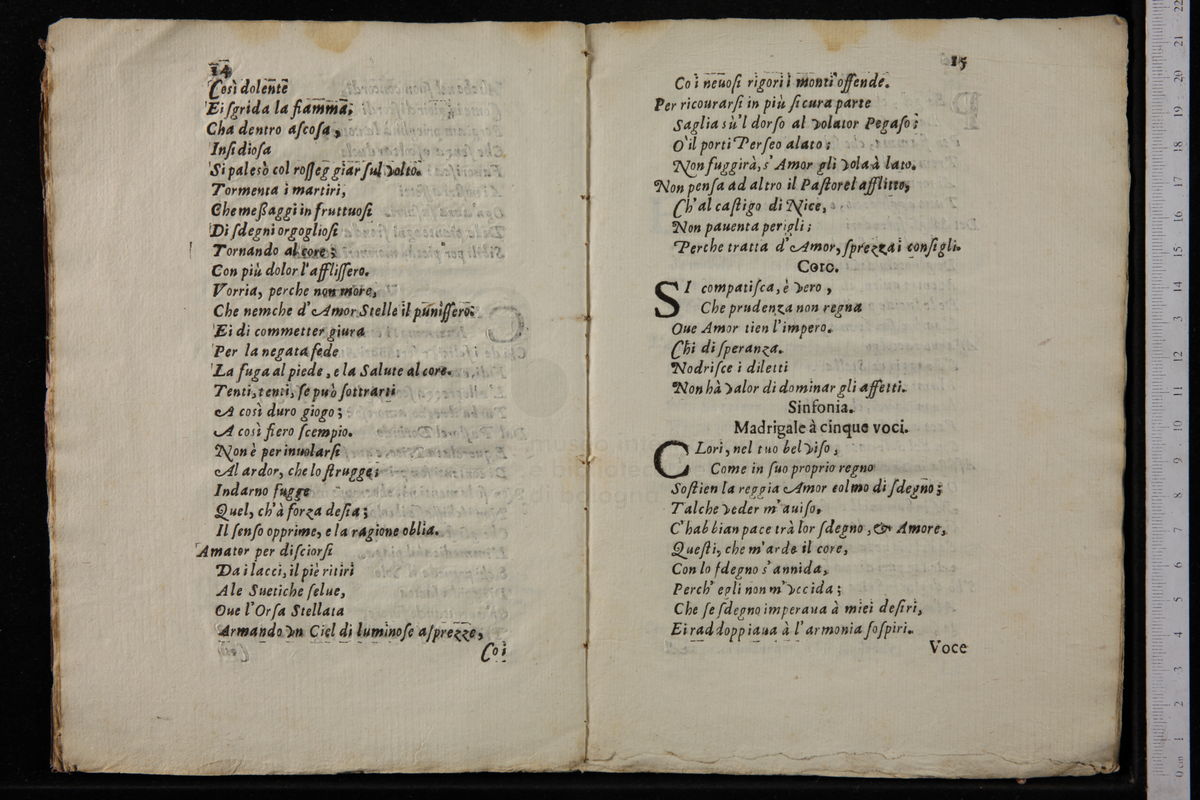 14
Così dolente
Ei sgrida la fiamma;
Cha dentro ascosa,
Insidiosa
Si palesò col rosseg giar sul volto.
Tormenta i martiri;
Che messaggi in fruttuosi
Di sdegni orgogliosi
Tornando al core;
Con più dolor l'afflissero.
Vorria, perche non more,
Che nemche d'Amor Stelle il punissero.
Ei di commetter giura
Per la negata fede
La fuga al piede, e la Salute al core.
Tenti, tenti, se può sottrarsi
A così duro giogo;
A così fiero scempio.
Non è per inuolarsi
Al ardor, che lo strugge;
Indarno fugge
Quel, ch'à forza desia;
Il senso opprime, e la ragione oblia.
Amator per disciorsi
Da i lacci, il piè ritiri
Ale Suetiche selue,
Oue l'Orsa Stellata
Armando vn Ciel di luminose asprezze,
Coi
15
Co i neuosi rigori i monti offende.
Per ricourarsi in più sicura parte
Saglia sù'l dorso al volator Pegaso;
O'il porti Perseo alato;
Non fuggirà, s'Amor gli vola à lato.
Non pensa ad altro il Pastorel afflitto,
Ch'al castigo di Nice,
Non pauenta perigli;
Perche tratta d'Amor, sprezza i consigli.
Coro.
SI compatisca, è vero,
Che prudenza non regna
Oue Amor tien l'impero.
Chi di speranza.
Nodrisce i diletti
Non hà valor di dominar gli affetti.
Sinfonia.
Madrigale à cinque voci.
CLori, nel tuo bel viso,
Come in suo proprio regno
Sostien la reggia Amor colmo di sdegno;
Talche veder m'auiso.
C'hab bian pace trà lor sdegno, & Amore,
Questi, che m'arde il core,
Con lo sdegno s'annida,
Perch' egli non m'vccida;
Che se sdegno imperaua à miei desiri,
Ei rad doppiaua à l'armonia sospiri.
Voce